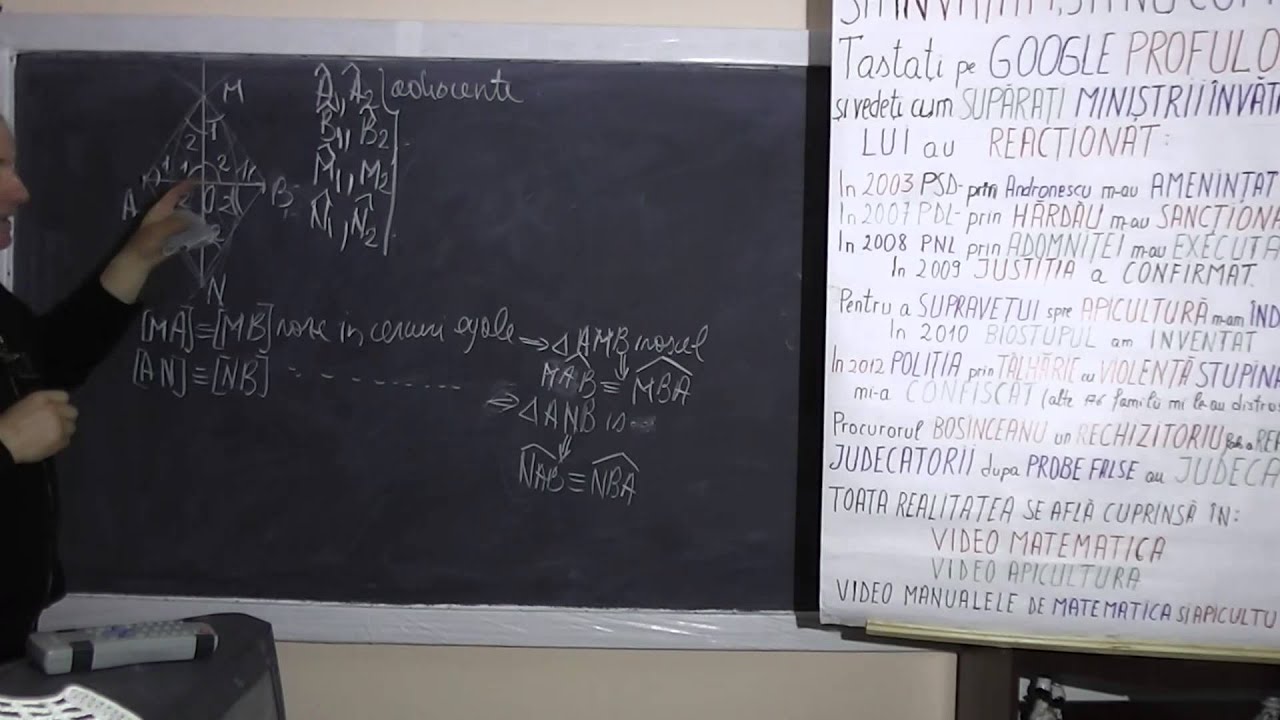 M
2 1
1 1 2 1
A 2 O 2 B
2
N
Â₁, Â₂ adiacente
B̂₁, B̂₂
M̂₁, M̂₂
N̂₁, N̂₂
[MA]≡[MB] raze in cercuri egale ⇒ △AMB isoscel
MAB ≡ MBA
[AN]≡[NB] - - - - - - - -
⇒ △ANB is
NAB ≡ NBA
Tastați pe GOOGLE PROFULO
și vedeți cum SUPĂRAȚI MINIȘTRII ÎNVĂȚ
LUI au REACȚIONAT:
In 2003 PSD- prin Andronescu m-au AMENINȚAT
In 2007 PDL- prin HĂRDĂU m-au SANCȚIONA
In 2008 PNL prin ADOMNIȚEI m-au EXECUTA
In 2009 JUSTIȚIA a CONFIRMAT.
Pentru a SUPRAVEȚUI spre APICULTURĂ m-am ÎND
In 2010 BIOSTUPUL am INVENTAT
In 2012 POLIȚIA prin TÂLHĂRIE cu VIOLENȚĂ STUPINA
mi-a CONFISCAT (alte familii mi le-au distru
Procurorul BOSÎNCEANU un RECHIZITORIU
JUDECĂTORII după PROBE FALSE au JUDECA
TOATA REALITATEA SE AFLĂ CUPRINSĂ ÎN:
VIDEO MATEMATICA
VIDEO APICULTURA
VIDEO MANUALELE DE MATEMATICA SI APICULTU